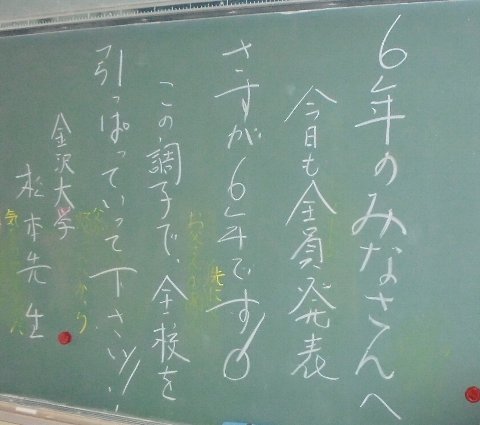 6年のみなさんへ
今日も全員発表
さすが6年です!0
この調子で、全校を
引っぱっていって下さいッ!!
金沢大学
松本先生